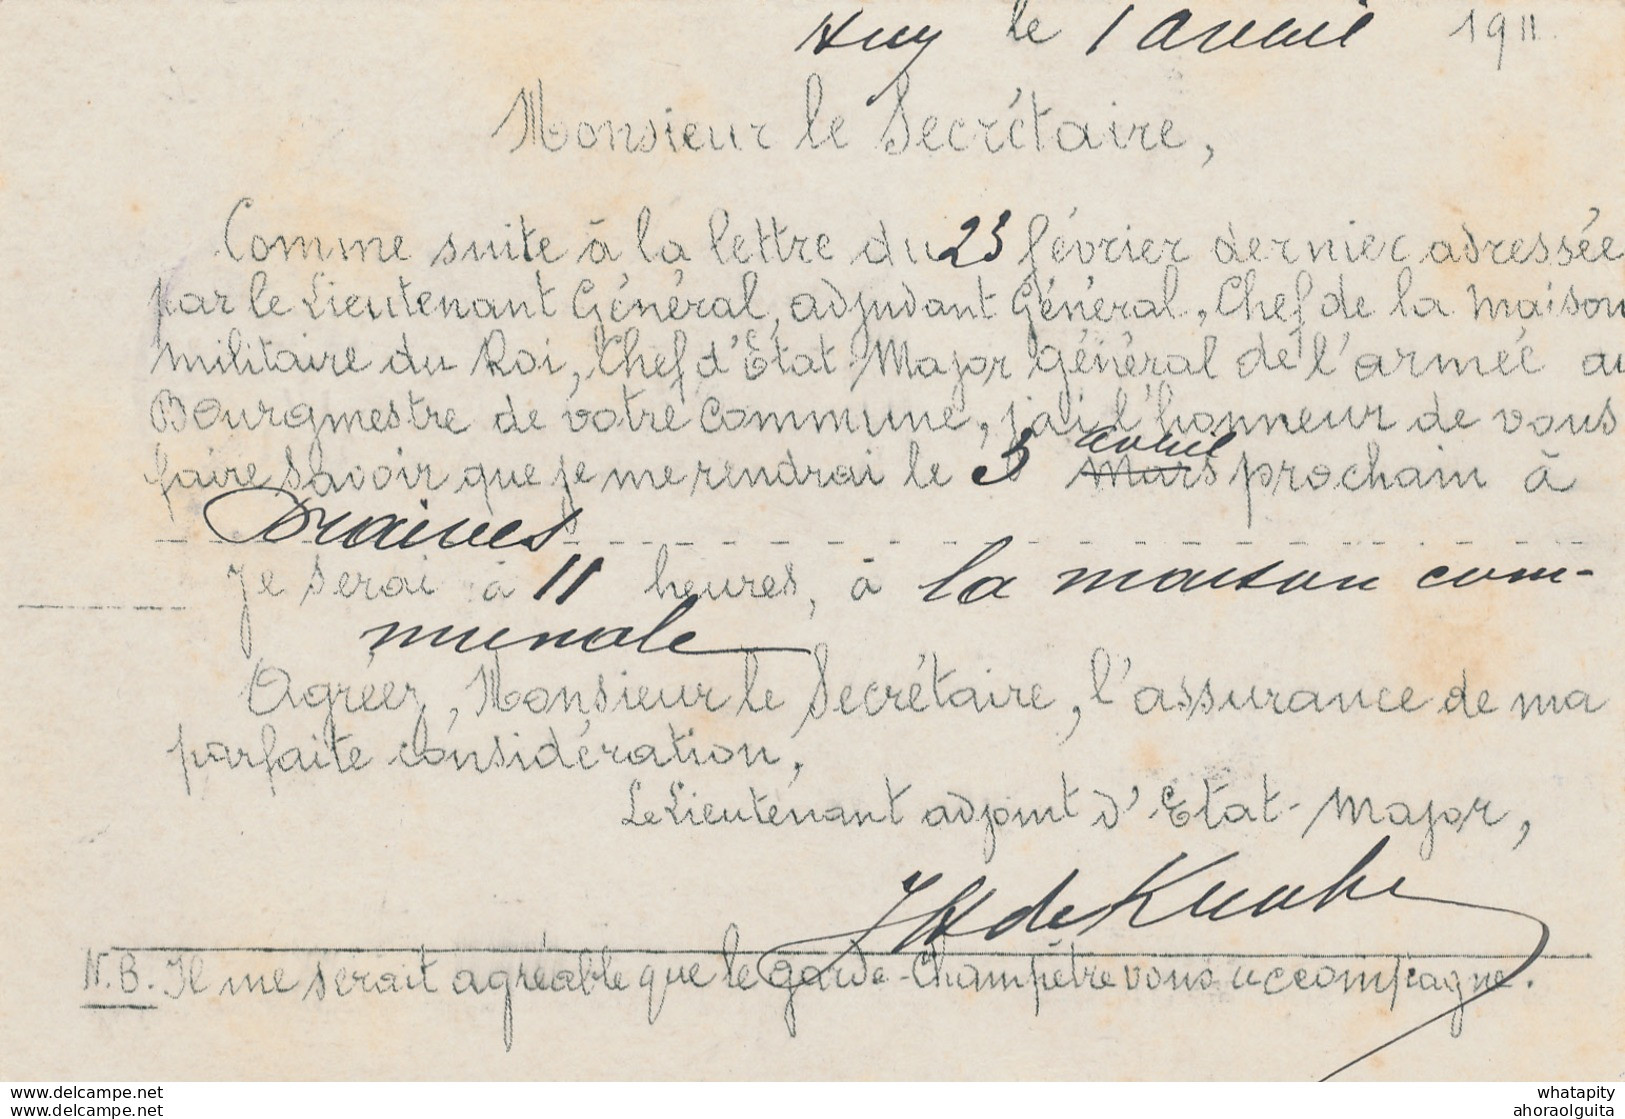 Huy le 1 avril 1911.
Monsieur le Secrétaire,
Comme suite à la lettre du 23 février dernier adressée
par le Lieutenant Général, adjudant Général, Chef de la Maison
militaire du Roi, Chef d'Etat-Major Général de l'armée au
Bourgmestre de votre commune, j'ai l'honneur de vous
avril
faire savoir que je me rendrai le 3 Mars prochain à
Braives
Je serai à 11 heures, à la maison com-
munale
Agréez, Monsieur le Secrétaire, l'assurance de ma
parfaite considération,
Le Lieutenant adjoint d'Etat-Major,
de
N.B. Il me serait agréable que le garde-Champêtre vous accompagne.
whatapity
ahoraolguita
delcampe.net
delcampe.net